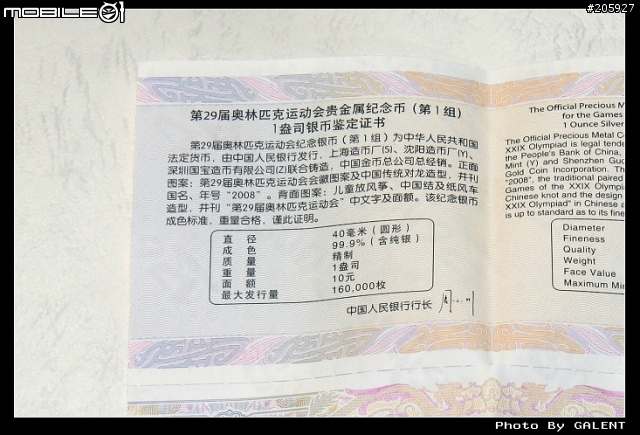 MOBILE01
#205927
第29届奥林匹克运动会贵金属纪念币（第1组）
1盎司银币鉴定证书
第29届奥林匹克运动会纪念银币（第1组）为中华人民共和国
法定货币，由中国人民银行发行，上海造币厂(S)、沈阳造币厂(Y)、
深圳国宝造币有限公司(Z)联合铸造，中国金币总公司总经销。正面
图案：第29届奥林匹克运动会会徽图案及中国传统对龙造型，并刊
国名、年号“2008”。背面图案：儿童放风筝、中国结及纸风车
造型，并刊“第29届奥林匹克运动会”中文字及面额。该纪念银币
成色标准，重量合格，谨此证明。
直 径 40毫米（圆形）
成 色 99.9%（含纯银）
质 量 精制
重 量 1盎司
面 额 10元
最大发行量 160,000枚
中国人民银行行长
The Official Precious M
for the Games
1 Ounce Silver
The Official Precious Metal C
XXIX Olympiad is legal tende
the People's Bank of China,
Mint (Y) and Shenzhen Guo
Gold Coin Incorporation. The
"2008", the traditional paired
Games of the XXIX Olympia
Chinese knot and the design
XXIX Olympiad" in Chinese a
is up to standard as to its fine
Diameter
Fineness
Quality
Weight
Face Value
Maximum Min
Photo By GALENT